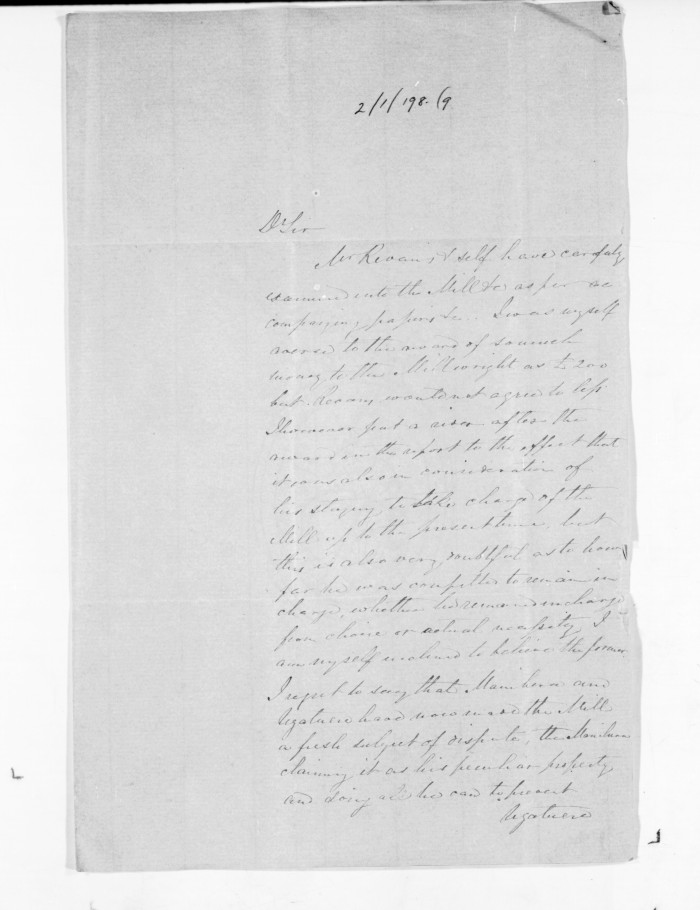 2/1/198. (9
Dr Sir
Mr & self have carefuly
examined into the Mill &c as per ac
companying papers &c. I was myself
averse to the award of so much
money to the Millwright as £200
but would not agree to less
I however put a after the
award in the report to the effect that
it was also in consideration of
his staying to take charge of the
Mill up to the present time, but
this is also very doubtful as to how
far he was compelled to remain in
charge, whether he remained in charge
from choice or actual necessity, I
am myself inclined to believe the former
I regret to say that Manihera and
Ngatuere have now made the Mill
a fresh subject of dispute, the Manihera
claiming it as his peculiar property
and doing all he can to prevent
Ngatuere